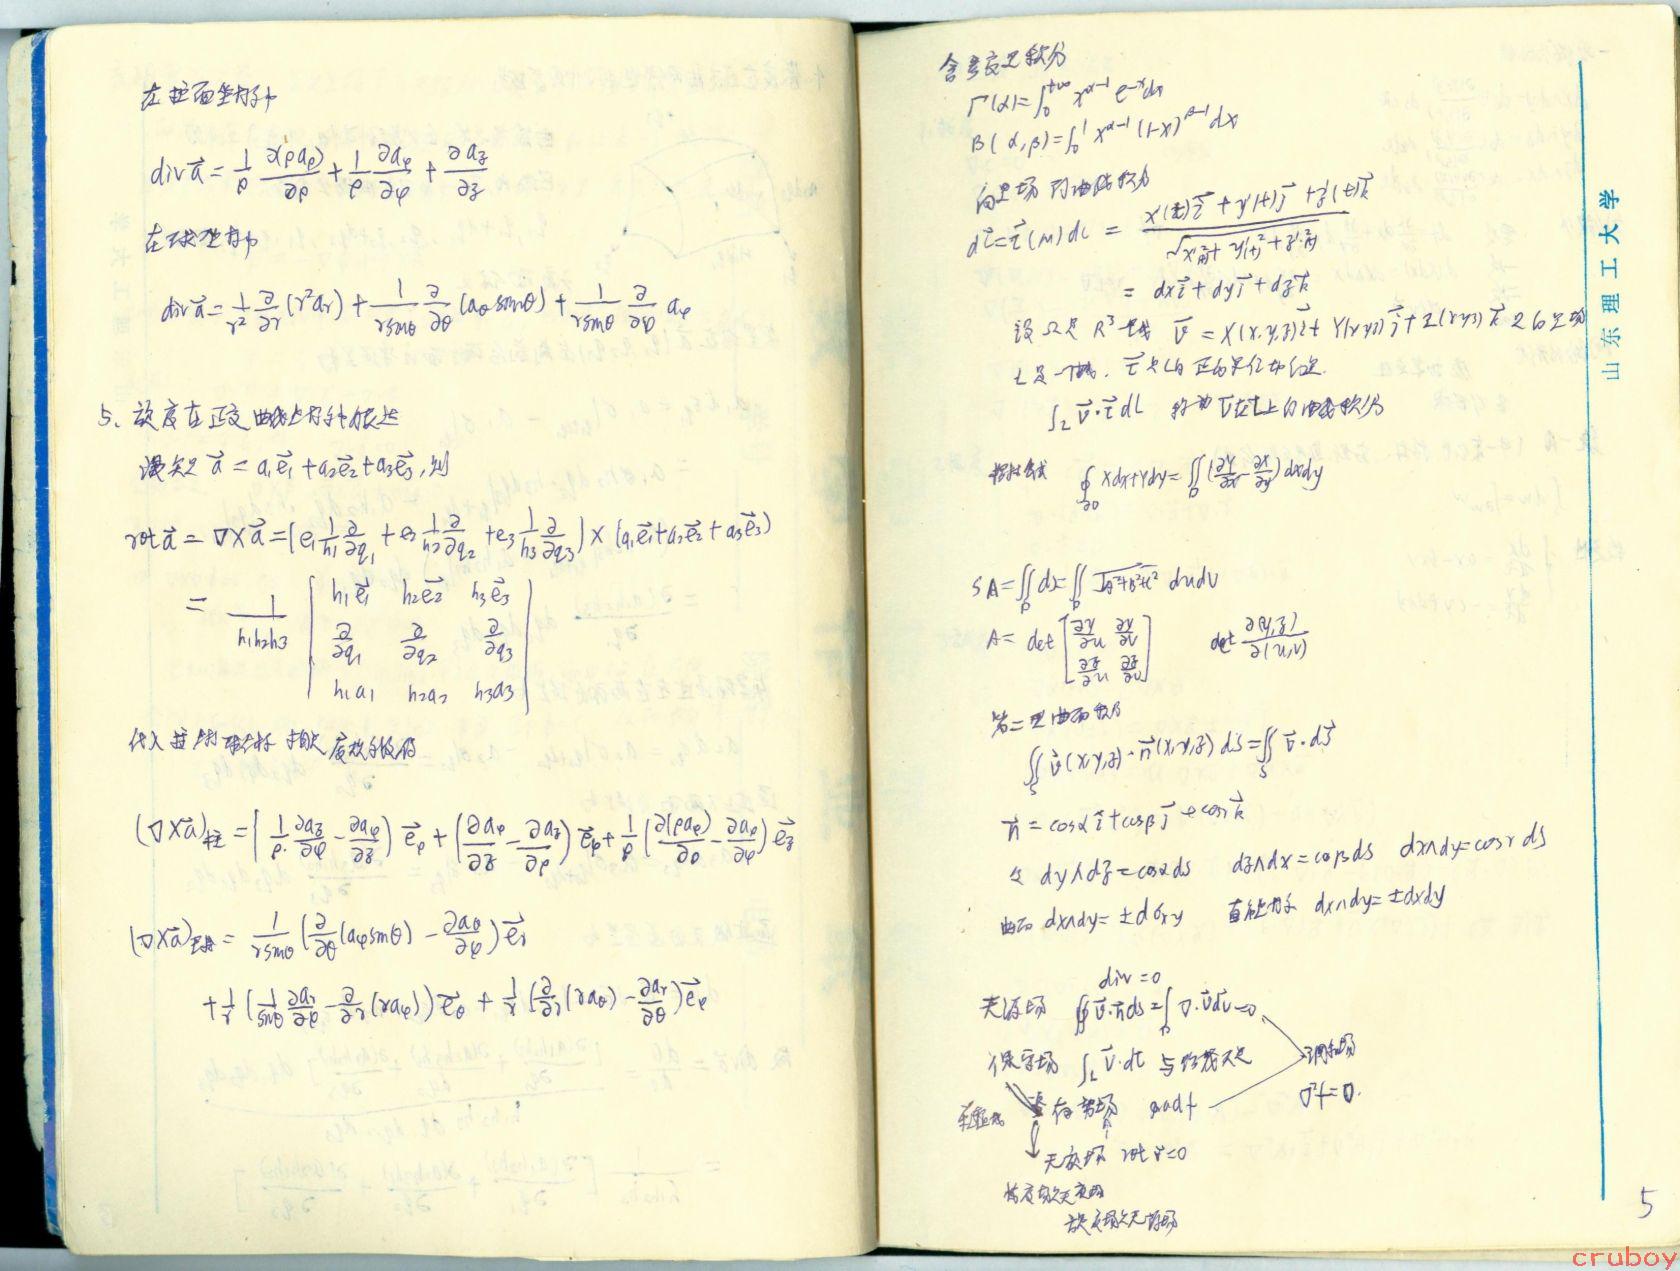 在柱面坐标中
div a⃗ = 1/ρ ∂(ρaρ)/∂ρ + 1/ρ ∂aφ/∂φ + ∂az/∂z
在球坐标中
div a⃗ = 1/r² ∂/∂r (r²ar) + 1/(r sinθ) ∂/∂θ (aθ sinθ) + 1/(r sinθ) ∂/∂φ aφ
5、旋度在正交曲线坐标中的表达
设矢量 a⃗ = a₁e⃗₁ + a₂e⃗₂ + a₃e⃗₃, 则
rot a⃗ = ∇×a⃗ = [e₁ 1/h₁ ∂/∂q₁ + e₂ 1/h₂ ∂/∂q₂ + e₃ 1/h₃ ∂/∂q₃] × (a₁e⃗₁ + a₂e⃗₂ + a₃e⃗₃)
= 1/(h₁h₂h₃) | h₁e⃗₁ h₂e⃗₂ h₃e⃗₃
∂/∂q₁ ∂/∂q₂ ∂/∂q₃
h₁a₁ h₂a₂ h₃a₃ |
代入
(∇×a⃗)柱 = [1/ρ · ∂az/∂φ − ∂aφ/∂z] e⃗ρ + (∂aρ/∂z − ∂az/∂ρ) e⃗φ + 1/ρ (∂(ρaφ)/∂ρ − ∂aρ/∂φ) e⃗z
(∇×a⃗) = 1/(r sinθ) (∂/∂θ (aφ sinθ) − ∂aθ/∂φ) e⃗r
+ 1/r (1/sinθ ∂ar/∂φ − ∂/∂r (raφ)) e⃗θ + 1/r (∂/∂r (raθ) − ∂ar/∂θ) e⃗φ
含参变量积分
Γ(α) = ∫₀^{+∞} x^{α−1} e^{−x} dx
B(α,β) = ∫₀¹ x^{α−1} (1−x)^{β−1} dx
向量场的曲线积分
dl⃗ = τ⃗(M)dl = (x′(t)i⃗ + y′(t)j⃗ + z′(t)k⃗) / √(x′²(t) + y′²(t) + z′²(t))
= dx i⃗ + dy j⃗ + dz k⃗
设Ω是R³ v⃗ = X(x,y,z)i⃗ + Y(x,y,z)j⃗ + Z(x,y,z)k⃗
∫L v⃗·τ⃗ dl 称为v⃗在L上的曲线积分
∮∂D Xdx+Ydy = ∬D (∂Y/∂x − ∂X/∂y) dxdy
SA = ∬D ds = ∬D √(A²+B²+C²) dudv
A = det [∂y/∂u ∂y/∂v
∂z/∂u ∂z/∂v] det ∂(y,z)/∂(u,v)
第二型曲面积分
∬S v⃗(x,y,z)·n⃗(x,y,z) dS = ∬S v⃗·dS⃗
n⃗ = cosα i⃗ + cosβ j⃗ + cosγ k⃗
dy∧dz = cosα ds dz∧dx = cosβ ds dx∧dy = cosγ dS
曲面 dx∧dy = ±dσxy dx∧dy = ±dxdy
div = 0
无源场 ∯ v⃗·n⃗ds = ∫ ∇·v⃗dv = 0
保守场 ∫L v⃗·dl 与路径无关 调和场
有势场 gradf ∇²f = 0.
无旋场 rot v⃗ = 0
山东理工大学
5
cruboy